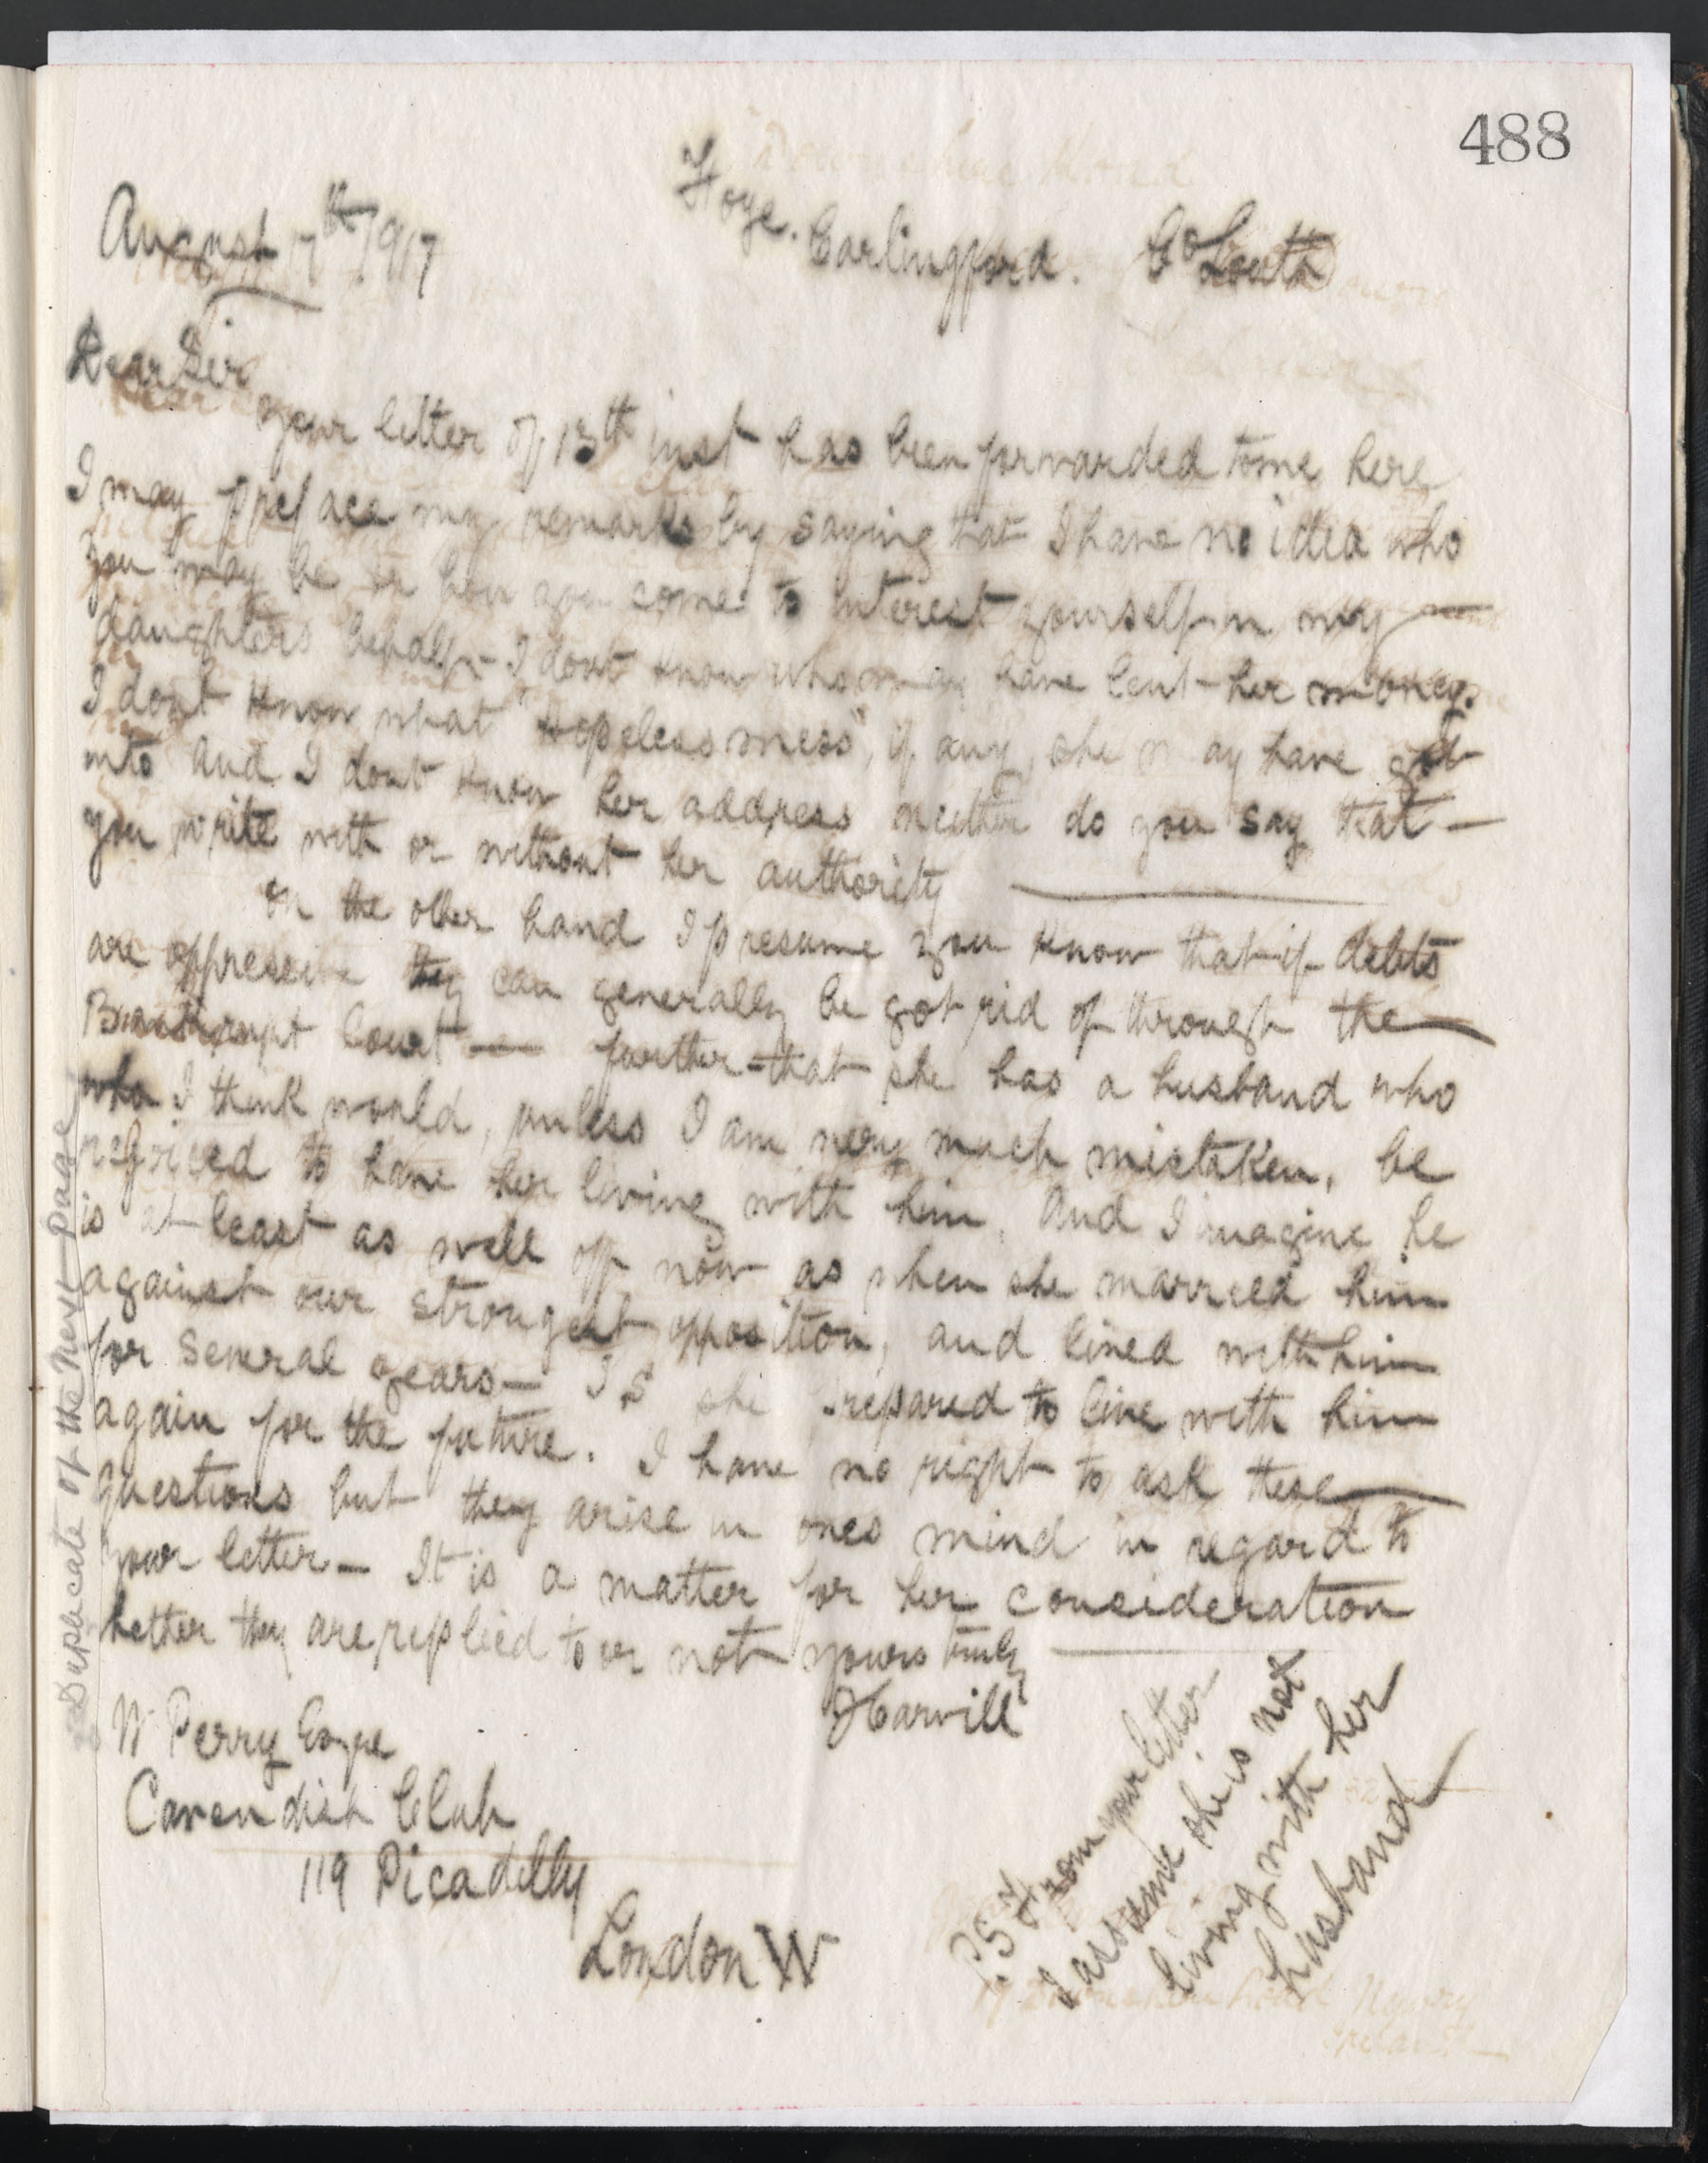 488
August 17th 1917
Foye. Carlingford. Co Louth
Dear Sir
your letter of 13th inst has been forwarded to me here
I may preface my remarks by saying that I have no idea who
you may be or how you come to interest yourself in my —
daughters behalf – I dont know who may have lent her money.
I dont know what "hopeless mess", if any, she may have got
into and I dont know her address neither do you say that —
you write with or without her authority
On the other hand I presume you know that if debts
are oppressive they can generally be got rid of through the —
Bankrupt Court — further – that she has a husband who
who I think would, unless I am very much mistaken, be
rejoiced to have her living with him. And I imagine he
is at least as well off now as when she married him
against our strongest opposition, and lived with him
for several years — Is she prepared to live with him
again for the future. I have no right to ask these —
questions but they arise in ones mind in regard to
your letter — It is a matter for her consideration
hether they are replied to or not yours truly
W Perry Esqre
Cavendish Club
119 Picadilly
London W
PS From your letter
I assume she is not
living with her
husband
Duplicate of the Next Page